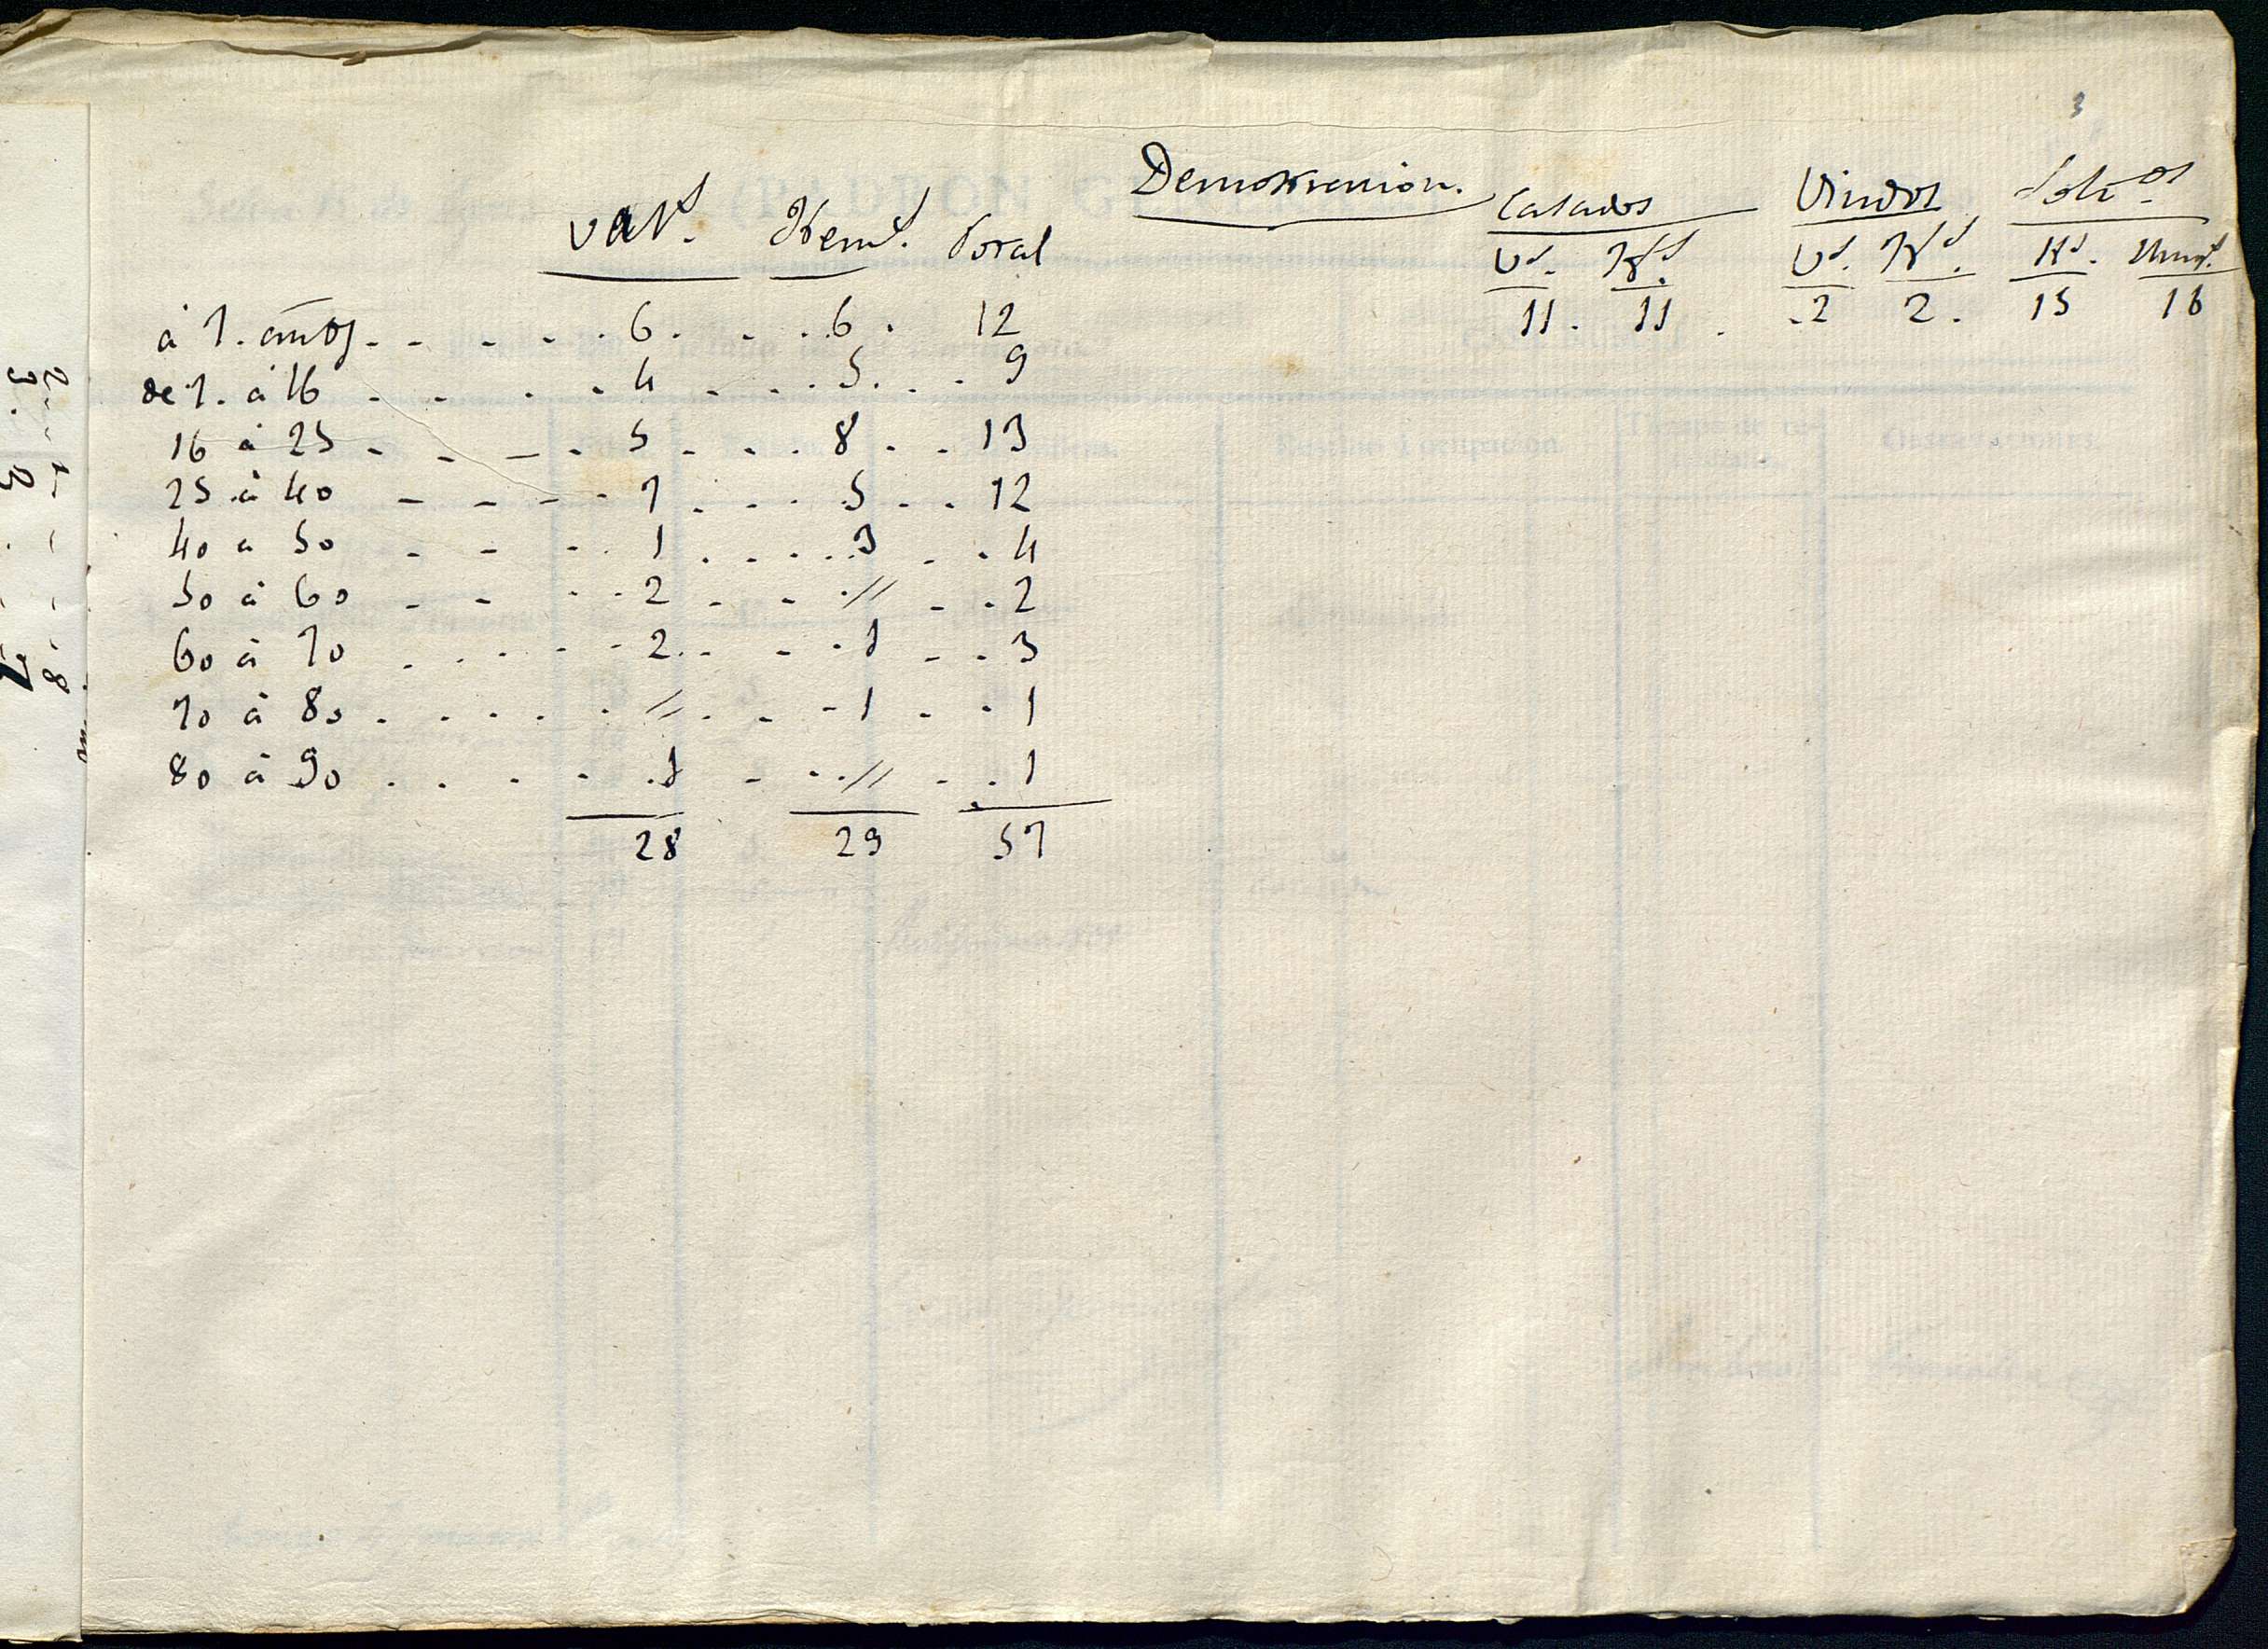 3
Demostracion.
Var.s Hem.s Total
à 7. años 6. 6. 12
de 7. à 16 4 5. 9
16 à 25 5 8 13
25 à 40 7 5 12
40 a 50 1 3 4
50 à 60 2 // 2
60 à 70 2 1 3
70 à 80 // 1 1
80 à 90 1 // 1
28 29 57
Casados Viudos Solt.os
V.s H.s V.s H.s H.s
11. 11. 2 2. 15 16